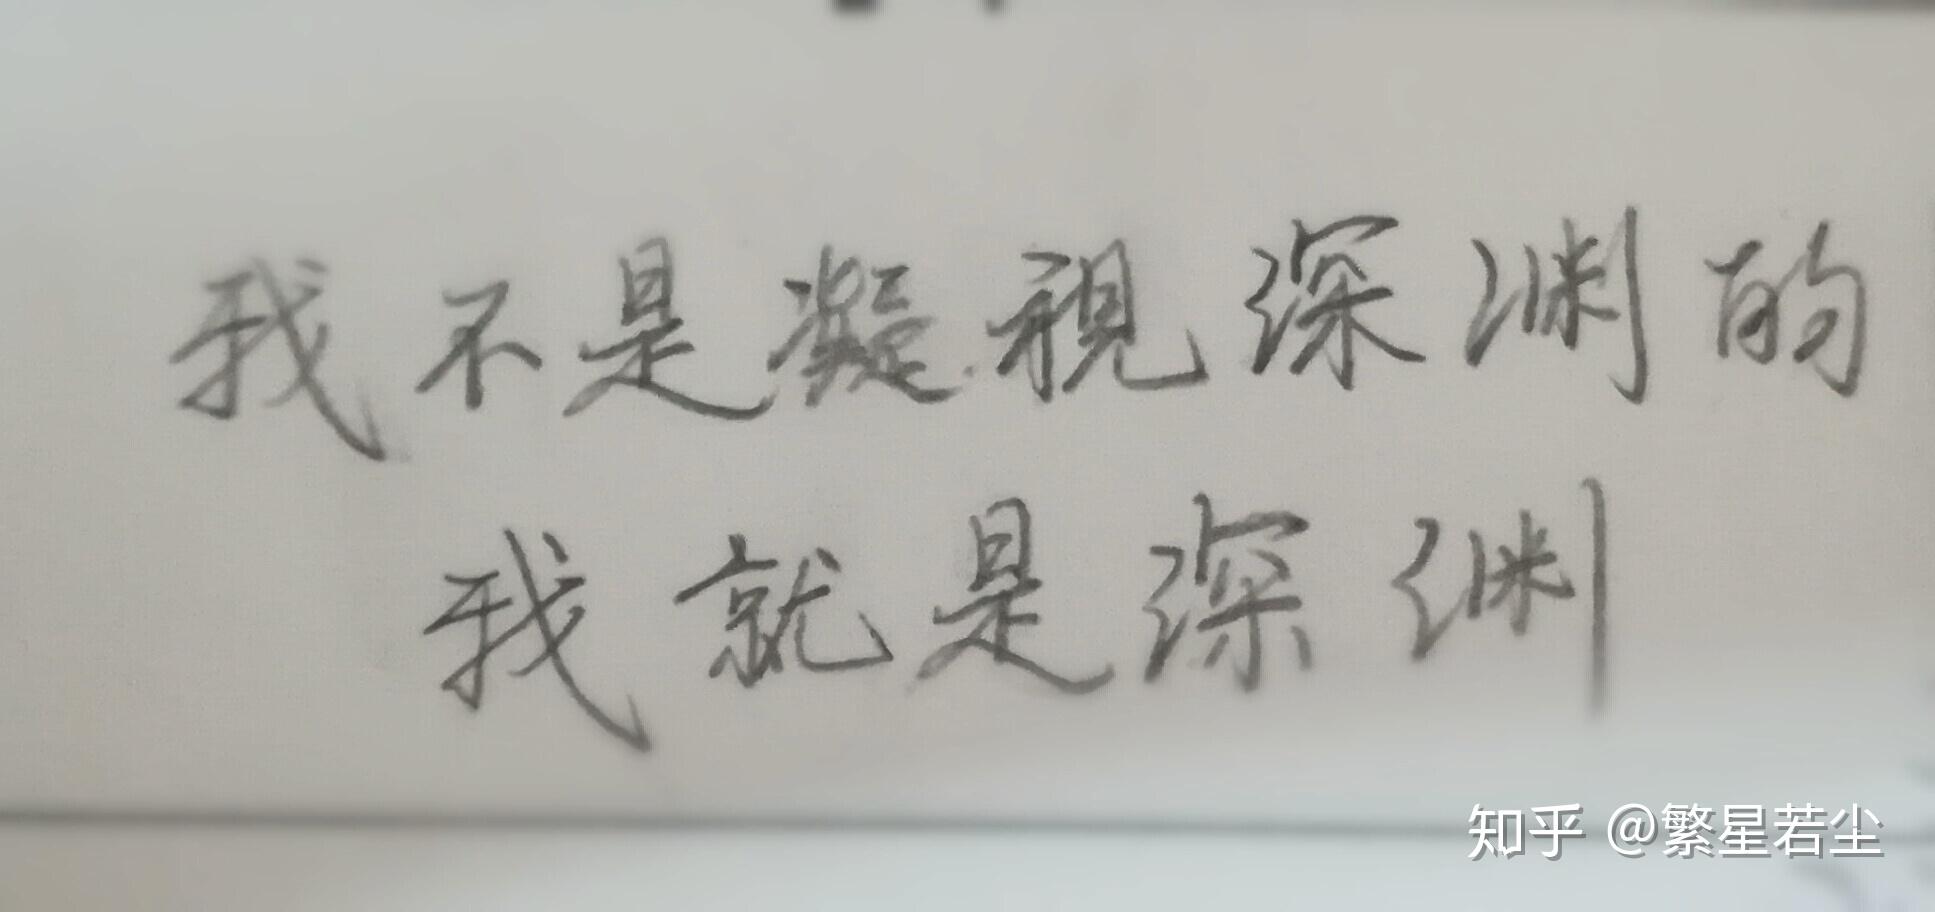 我不是凝视深渊的
我就是深渊
知乎 @繁星若尘